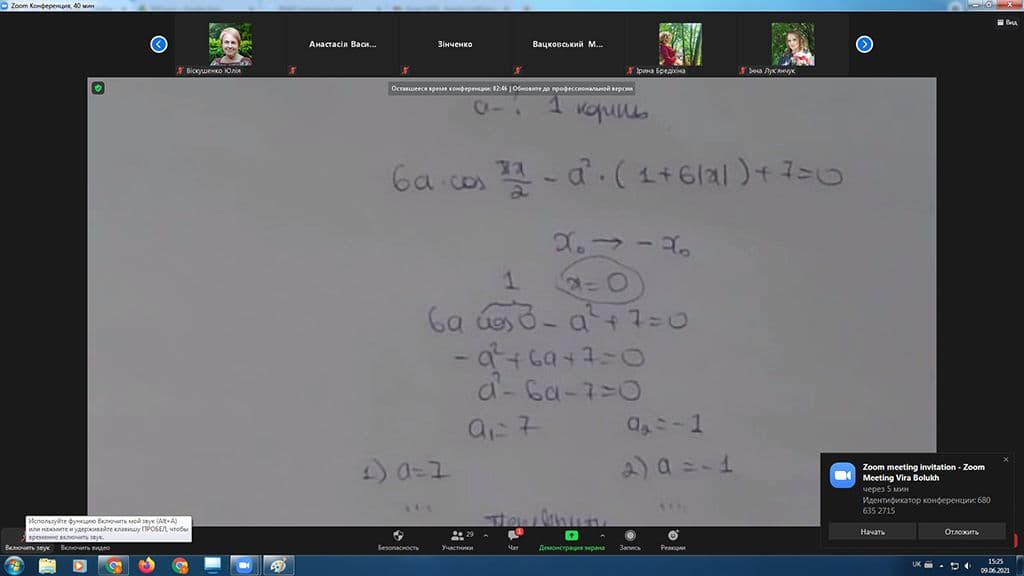 Zoom Конференция, 40 мин
Вид
Віскушенко Юлія
Анастасія Васи...
Зінченко
Вацковський М...
Ірина Бредіхіна
Інна Лук'янчук
Оставшееся время конференции: 82:46 | Обновите до профессиональной версии
a - ? 1 корінь
6a·cos πx/2 - a²·(1+6|x|)+7=0
x₀ → -x₀
1 x=0
6a cos0 - a²+7=0
-a²+6a+7=0
a²-6a-7=0
a₁=7 a₂=-1
1) a=7 2) a=-1
... ....
Zoom meeting invitation - Zoom
Meeting Vira Bolukh
через 5 мин
Идентификатор конференции: 680
635 2715
Начать Отложить
Используйте функцию Включить мой звук (Alt+A)
или нажмите и удерживайте клавишу ПРОБЕЛ, чтобы
временно включить звук.
Включить звук
Включить видео
Безопасность
Участники 29
Чат 1
Демонстрация экрана
Запись
Реакции
UK
15:25
09.06.2021